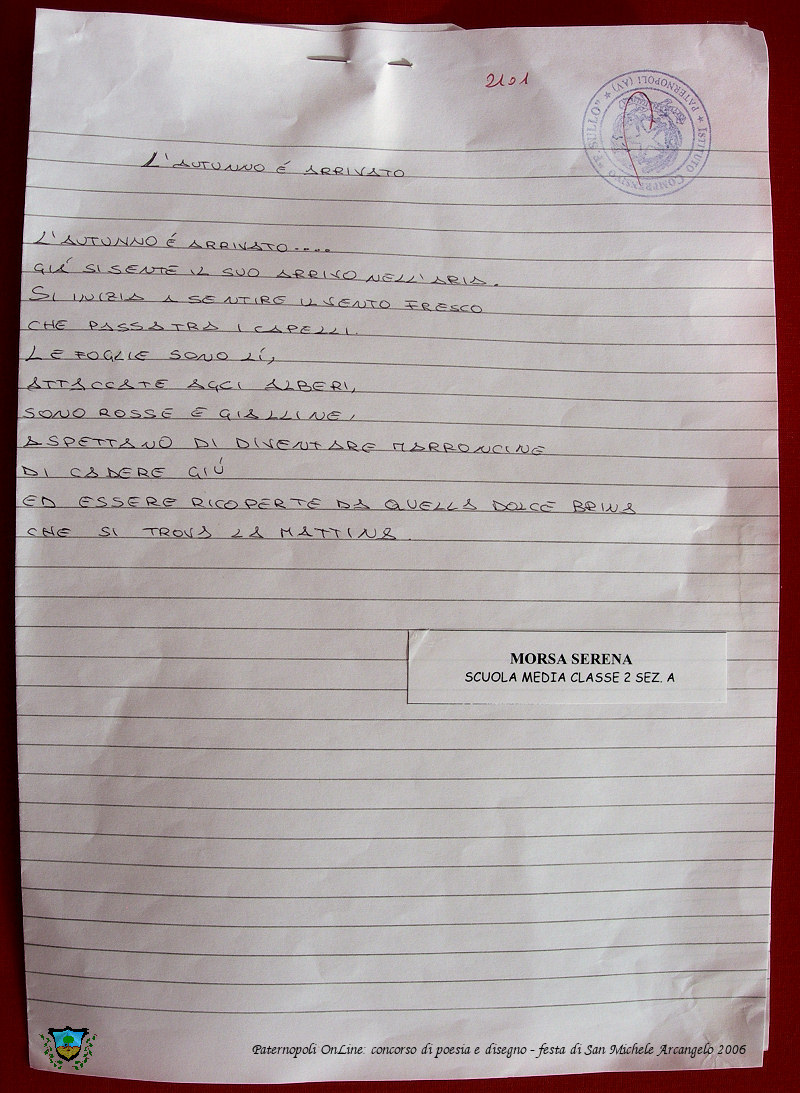 2101
ISTITUTO COMPRENSIVO "F. SULLO" * PATERNOPOLI (AV) *
L'AUTUNNO É ARRIVATO
L'AUTUNNO É ARRIVATO....
GIÁ SI SENTE IL SUO ARRIVO NELL'ARIA.
SI INIZIA A SENTIRE IL VENTO FRESCO
CHE PASSA TRA I CAPELLI.
LE FOGLIE SONO LÍ,
ATTACCATE AGLI ALBERI,
SONO ROSSE E GIALLINE,
ASPETTANO DI DIVENTARE MARRONCINE
DI CADERE GIÚ
ED ESSERE RICOPERTE DA QUELLA DOLCE BRINA
CHE SI TROVA LA MATTINA.
MORSA SERENA
SCUOLA MEDIA CLASSE 2 SEZ. A
Paternopoli OnLine: concorso di poesia e disegno - festa di San Michele Arcangelo 2006